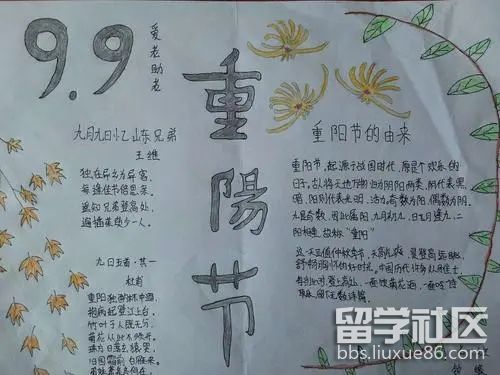 9.9
爱老助老
重陽节
九月九日忆山东兄弟
王维
独在异乡为异客,
每逢佳节倍思亲。
遥知兄弟登高处,
遍插茱萸少一人。
九日五首·其一
杜甫
重阳独酌杯中酒,
抱病起登江上台。
竹叶于人既无分,
菊花从此不须开。
殊方日落玄猿哭,
旧国霜前白雁来。
重阳节的由来
重阳节,起源于战国时代,原是个欢乐的
日子。古人将天地万物归为阴阳两类,阴代表黑
暗,阳则代表光明、活力。奇数为阳,偶数为阴。
九是奇数,因此属阳,九月初九,日月逢九,二
阳相重,故称“重阳”
这一天正值仲秋季节,天高气爽,是登高远眺,
舒畅胸怀的好时光。中国历代许多文人雅士
每到此时,登上高山,一面饮菊花酒,一面吟诗
取乐,留下无数诗篇。
留学社区
bbs.liuxue86.com